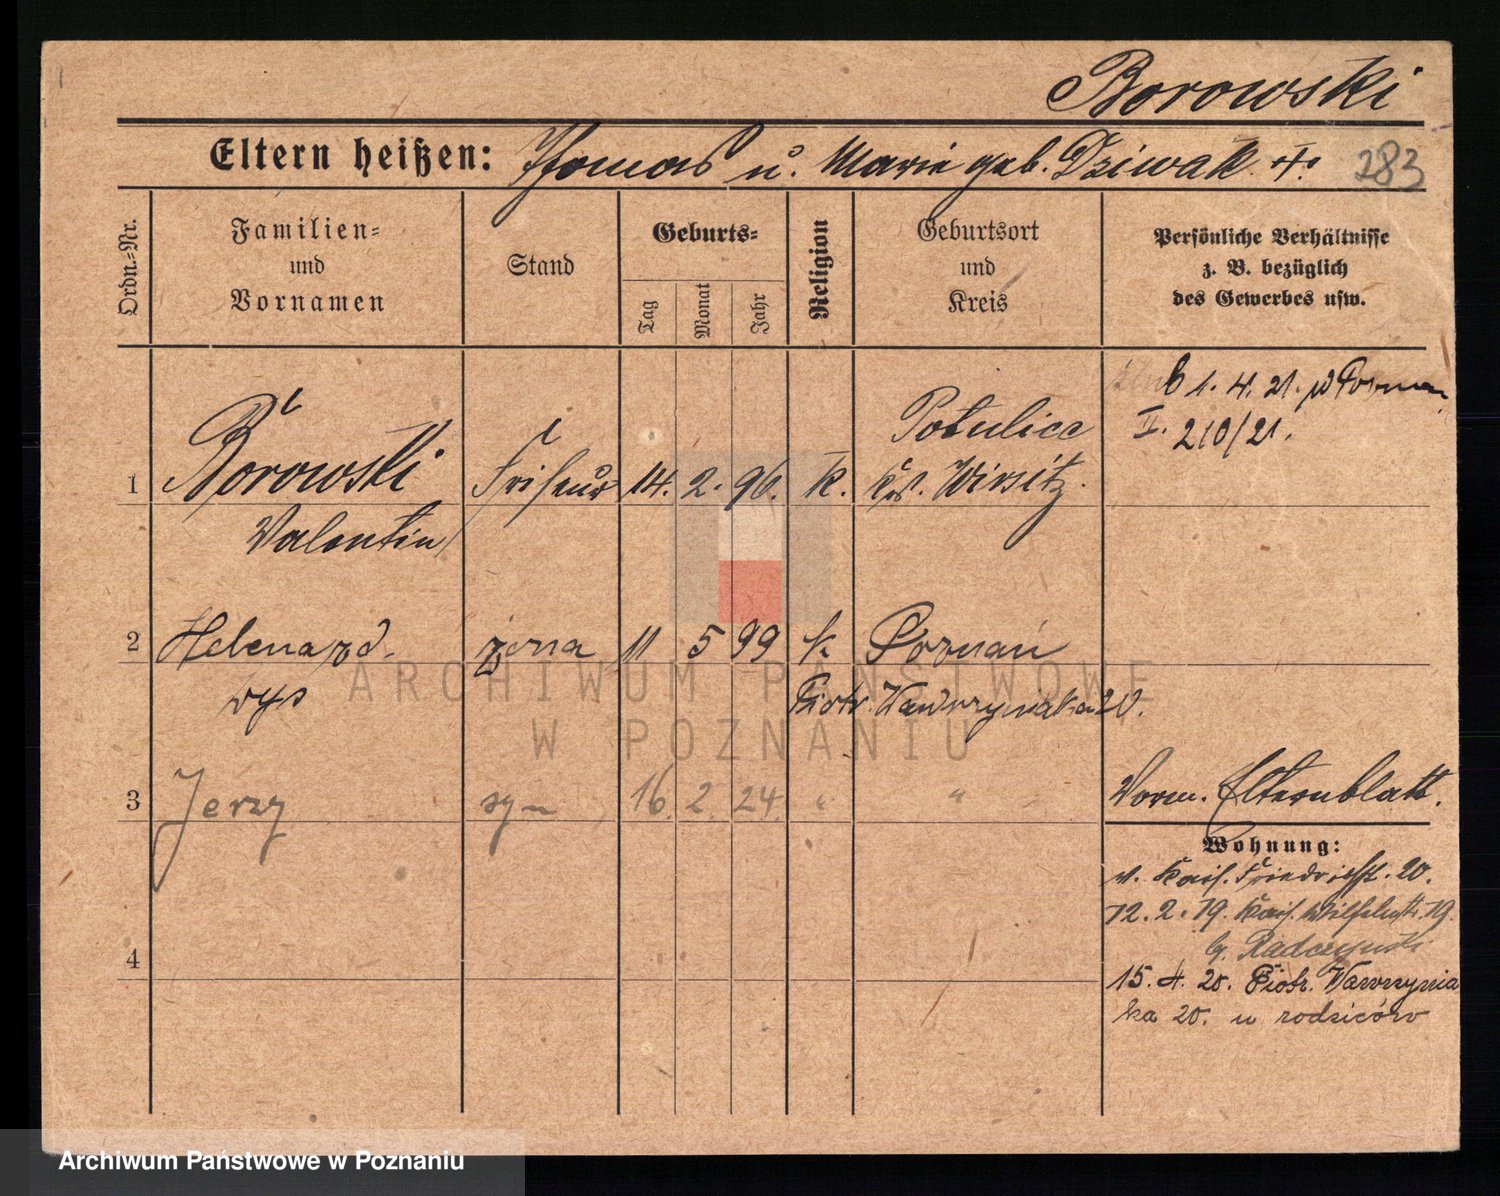 Borowski
Eltern heißen: Thomas u. Marie geb. Dziwak +. 283
Ordn.-Nr.
Familien-
und
Vornamen
Stand
Geburts-
Tag
Monat
Jahr
Religion
Geburtsort
und
Kreis
Persönliche Verhältnisse
z. B. bezüglich
des Gewerbes usw.
ślub 1. 4. 21. w Poznan
I. 210/21.
1 Borowski Friseur 14. 2. 96. k. Potulice
Krs. Wirsitz.
Valentin
2 Helena zd. żona 11 5 99 k Poznań
Piotr. Wawrzyniaka 20.
3 Jerzy syn 16. 2. 24. " "
Vorm. Elternblatt.
Wohnung:
v. Kais. Friedrichst. 20.
12. 2. 19. Kais. Wilhelmstr. 19.
b. Radczynski
15. 4. 20. Piotr. Wawrzynia
ka 20. u rodziców
4
ARCHIWUM PAŃSTWOWE
W POZNANIU
Archiwum Państwowe w Poznaniu